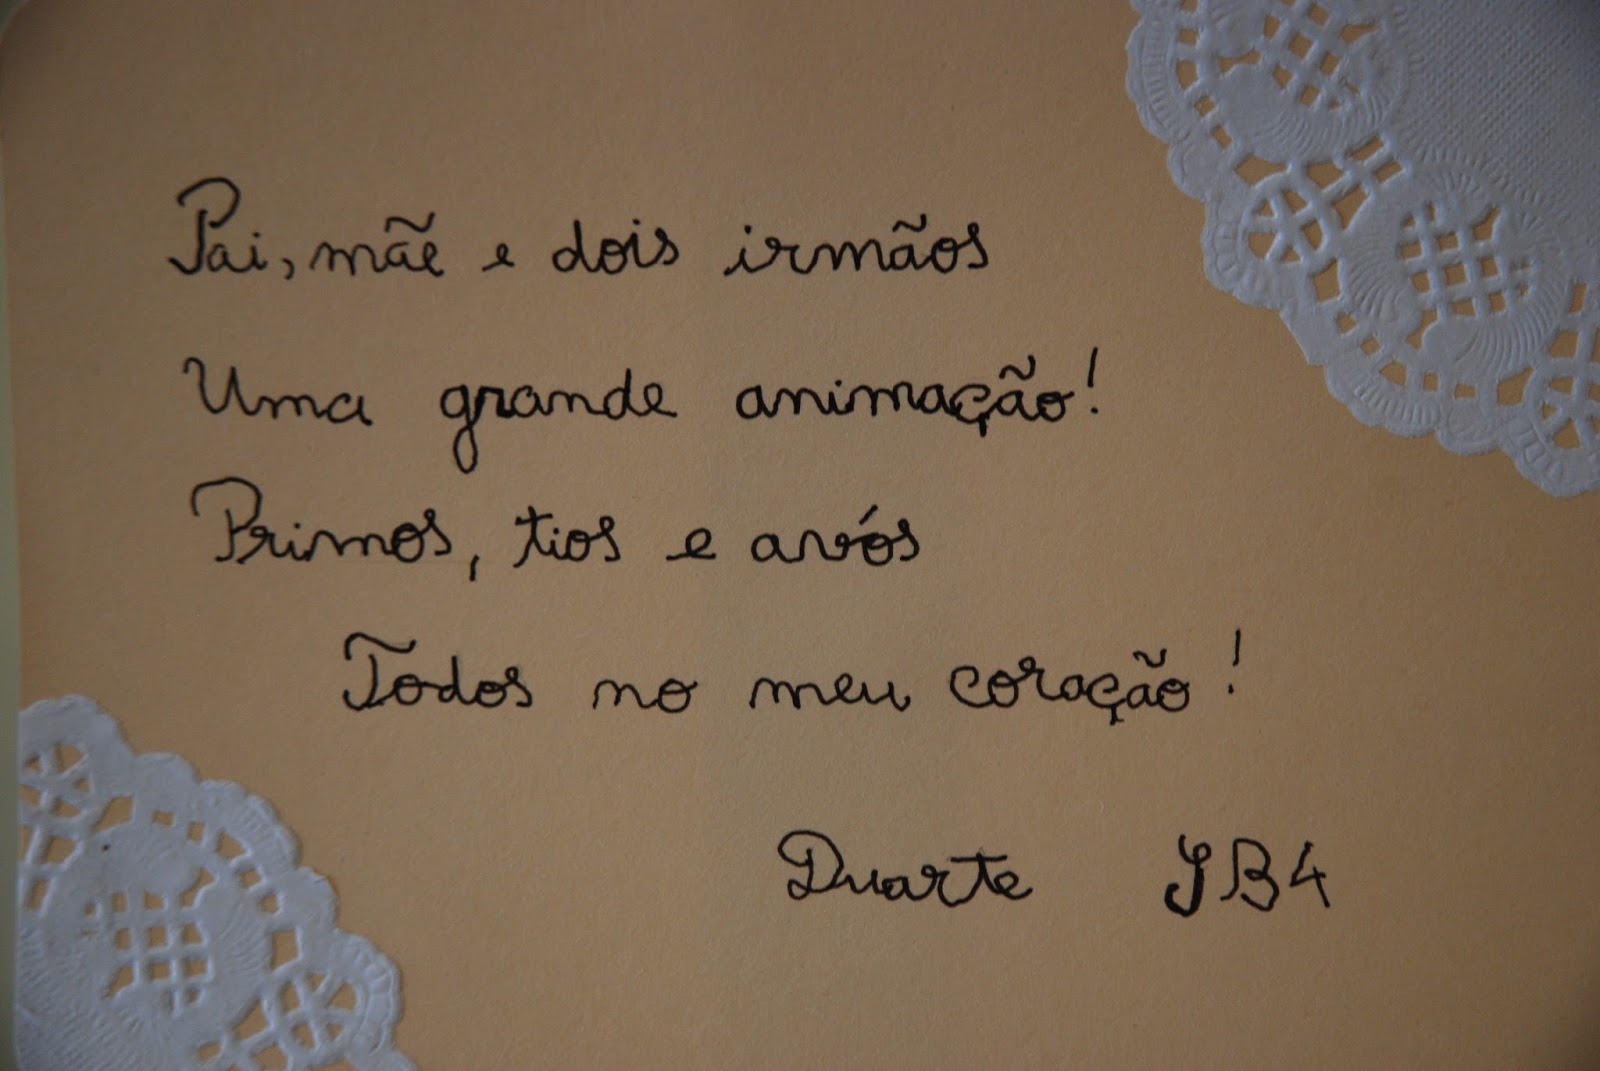 Pai, mãe e dois irmãos
Uma grande animação!
Primos, tios e avós
Todos no meu coração!
Duarte JB4